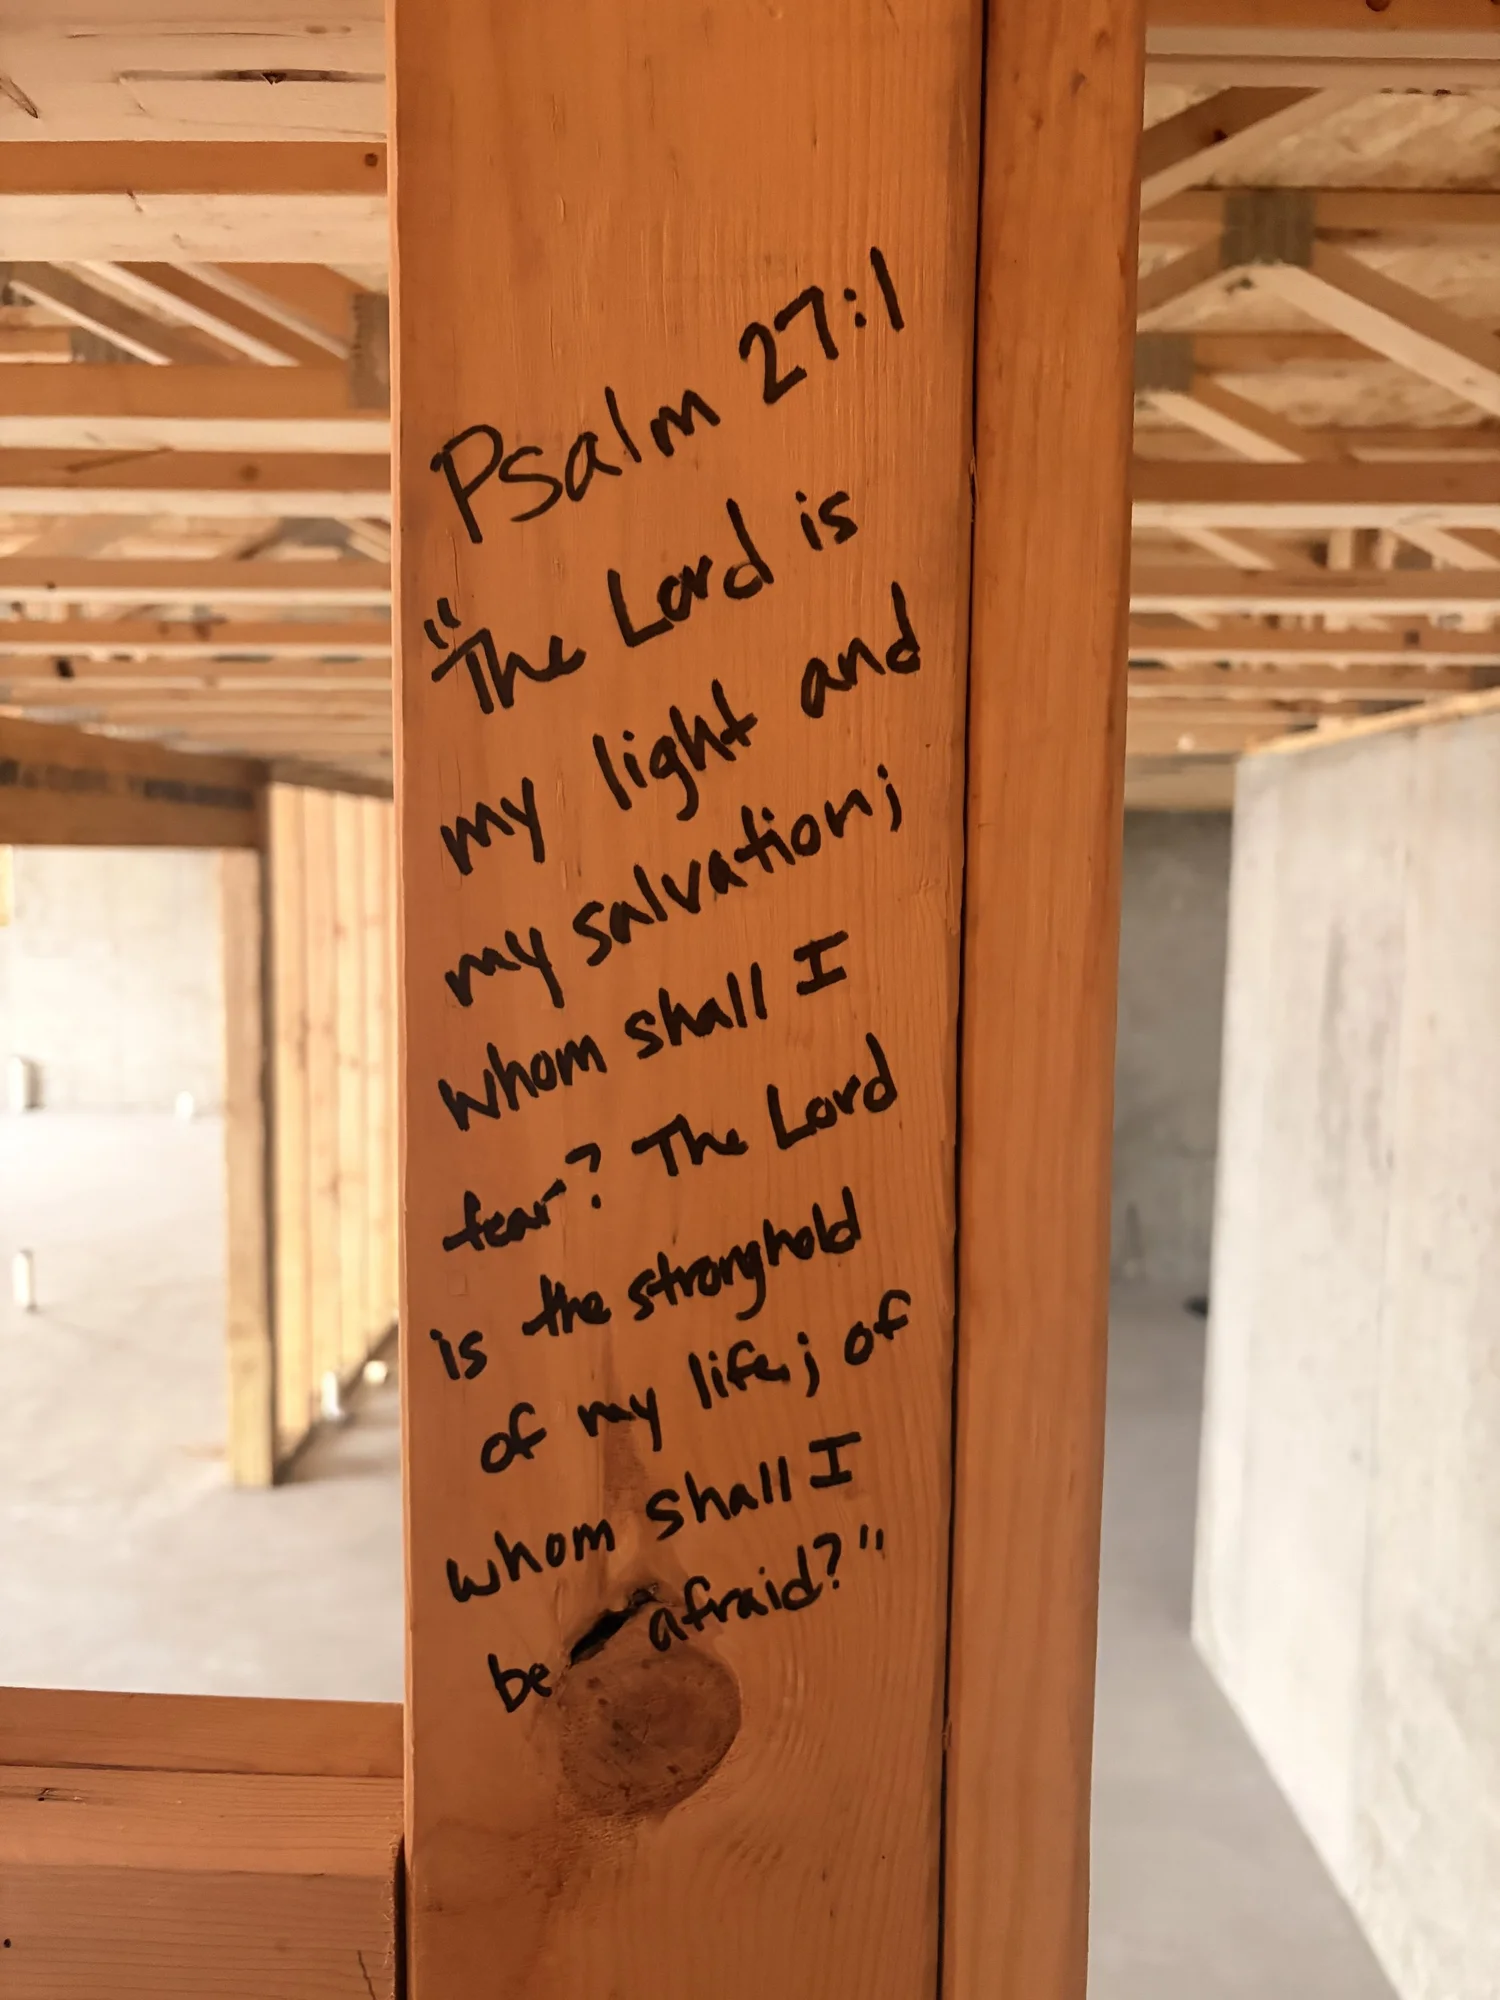 Psalm 27:1
"The Lord is
my light and
my salvation;
whom shall I
fear? The Lord
is the stronghold
of my life; of
whom shall I
be afraid?"